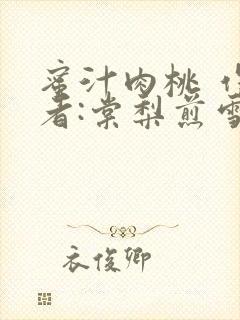 蜜汁肉桃 作
者:棠梨煎雪
衣俊卿